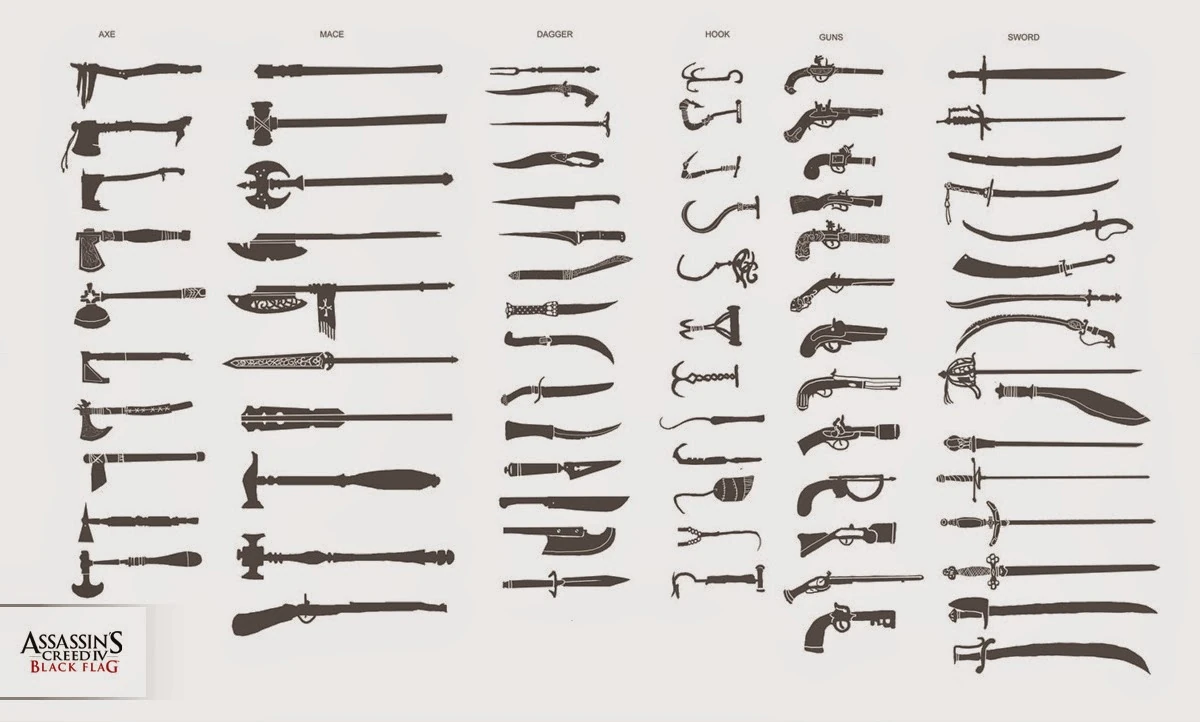 AXE
MACE
DAGGER
HOOK
GUNS
SWORD
ASSASSIN'S
CREED IV
BLACK FLAG